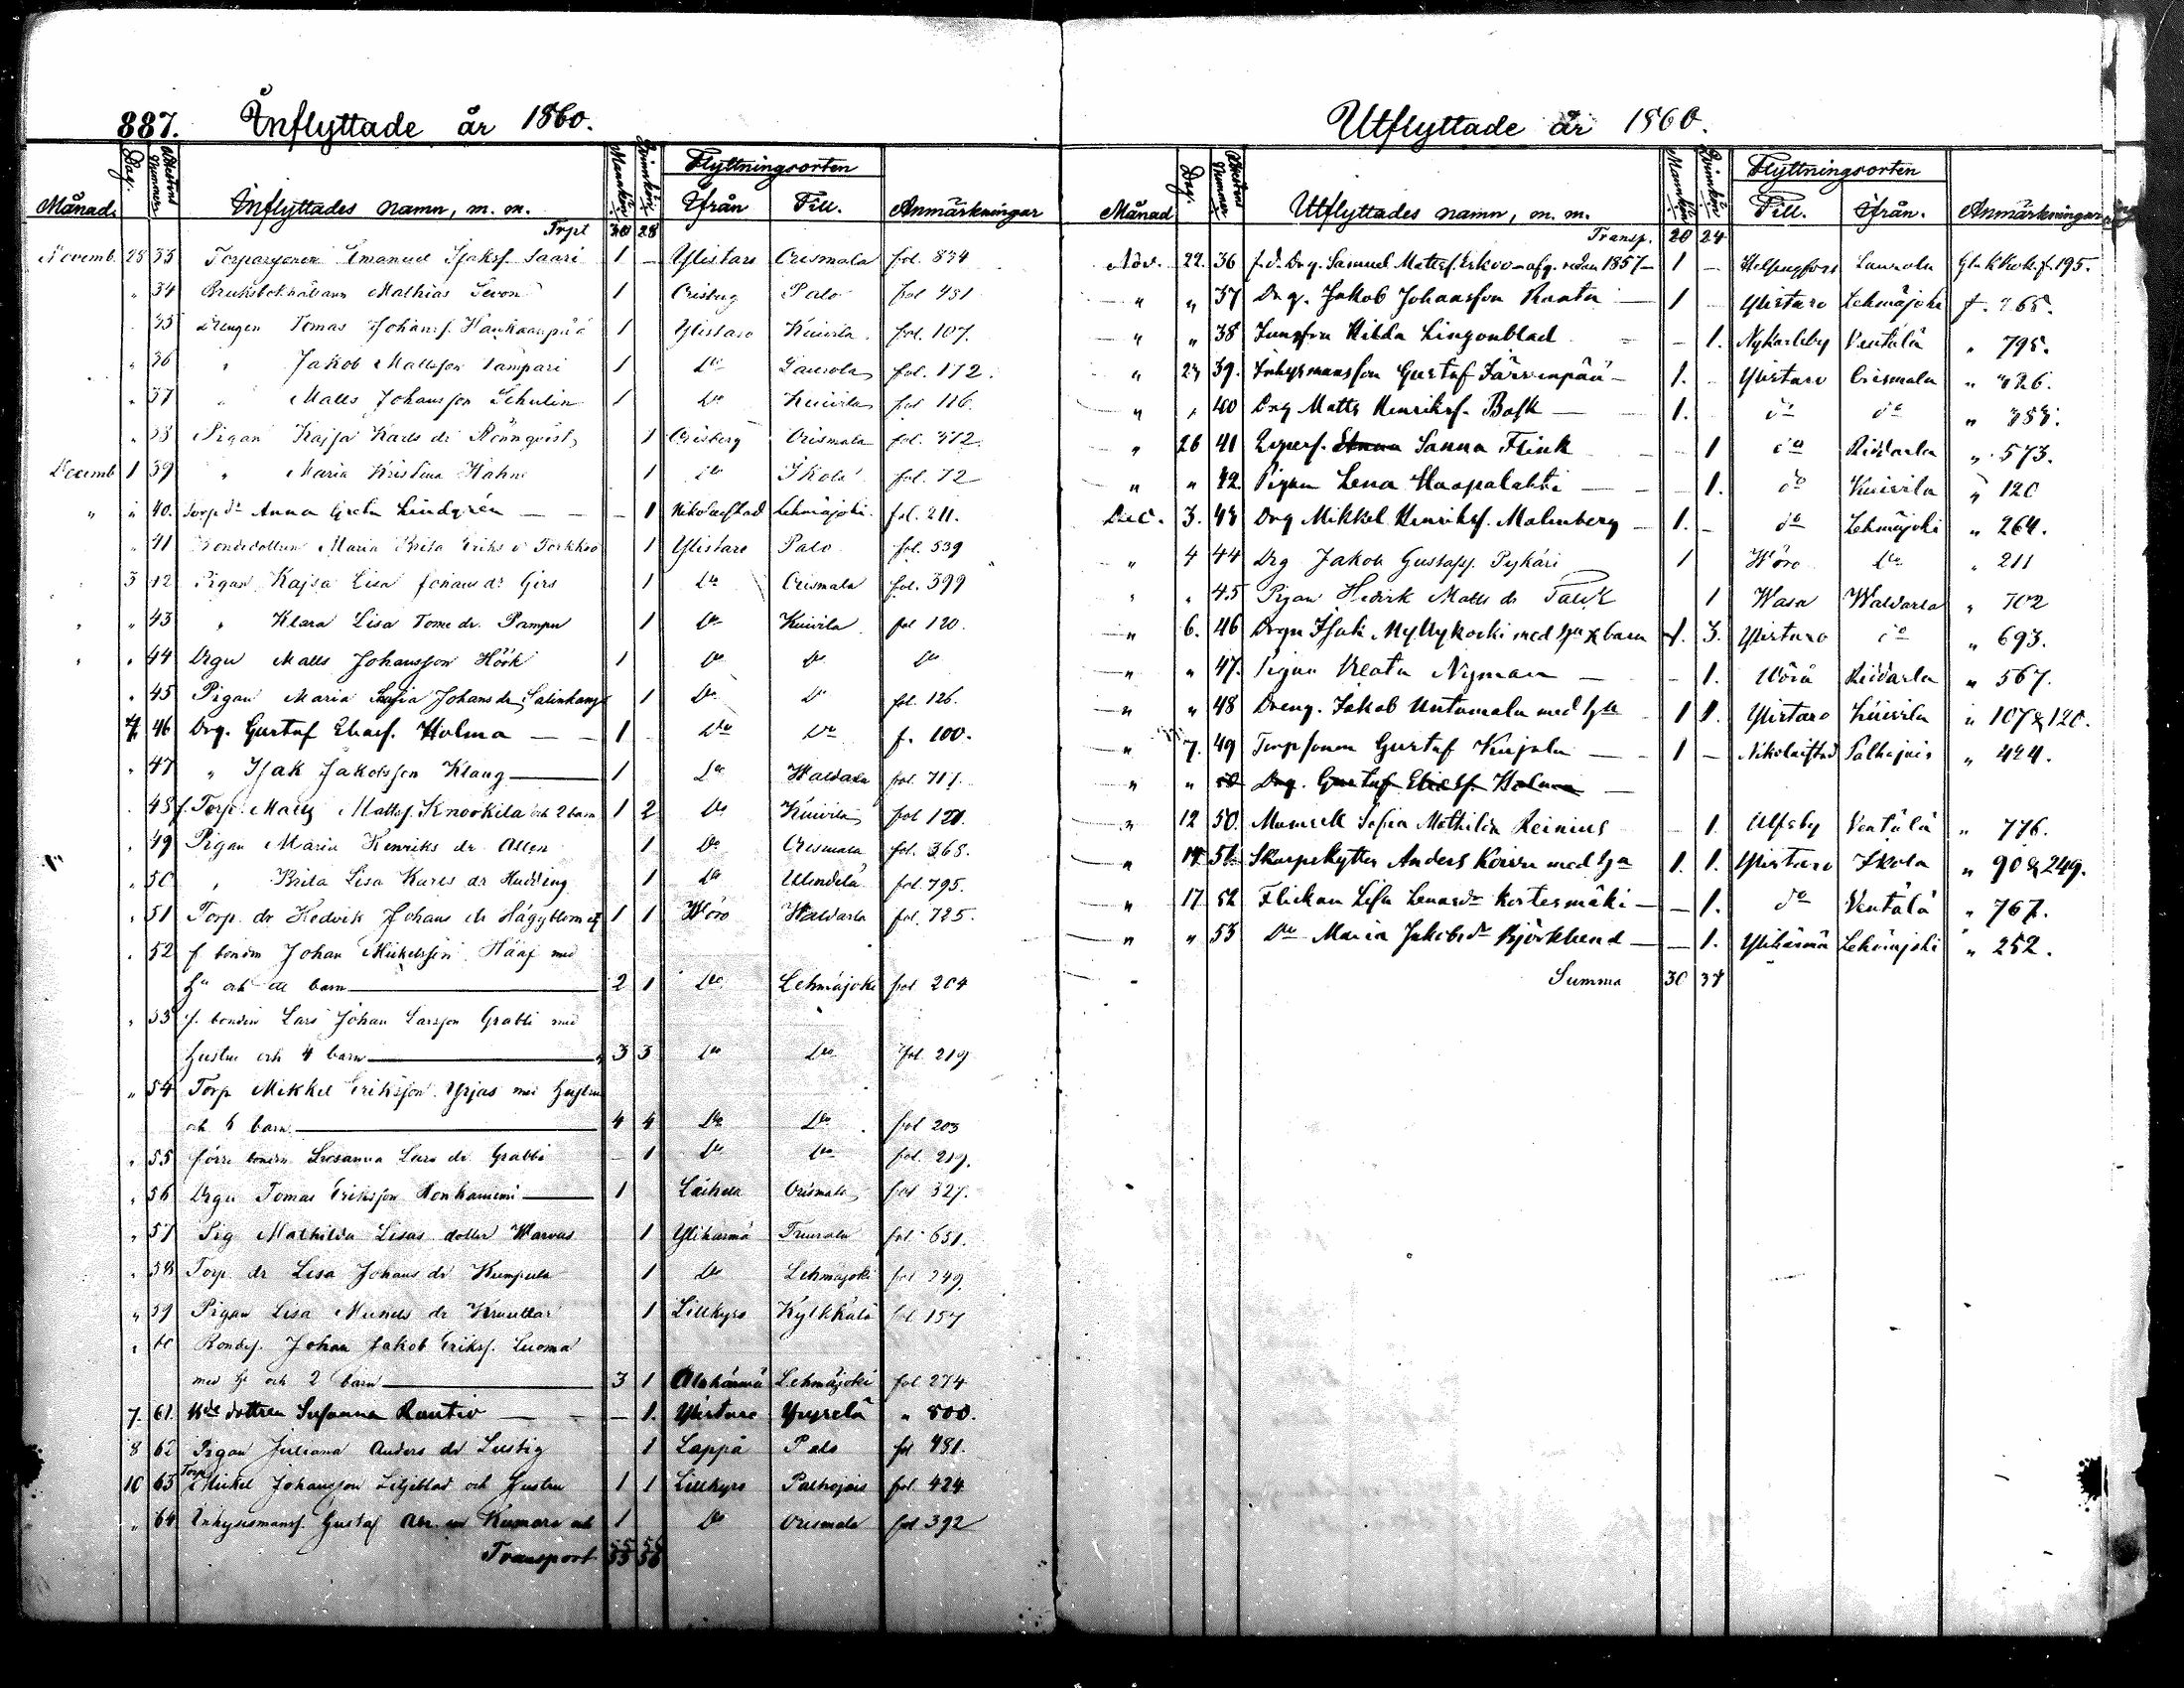 887. Inflyttade år 1860.
Månad. Dag. Attestens Nummer Inflyttades namn, m. m. Mankön. Qvinkön. Flyttningsorten Ifrån Till. Anmärkningar
Trpt 30 28
Novemb. 28 33 Torparesonen Emanuel Isaksf. Saari 1 – Ylistaro Orismala fol. 834
" 34 Bruksbokhållaren Mathias 1 Orisberg Palo fol 481
35 Drengen Tomas Johansf. Haukaanpää 1 Ylistaro Kuivila fol. 107.
" 36 " Jakob Mattsson Tampari 1 Do Laurola fol. 172.
" 37 " Matts Johansson Schulin 1 Do Kuivila fol 116.
" 38 Pigan Kajsa Karls dr Rönnqvist 1 Orisberg Orismala fol. 372
Decemb 1 39 " Maria Kristina Hahn 1 do Ikola fol. 72
" " 40. Torp dr Anna Greta Lindgrén – – – 1 Nikolaistad Lehmäjoki. fol. 211.
" 41 Bondedottren Maria Brita Eriks d Torkko 1 Ylistaro Palo fol. 539
" 3 42 Pigan Kajsa Lisa Johans dr Girs 1 Do Orismala fol. 399
" " 43 " Klara Lisa Tome dr. Pampu 1 Do Kuivila fol 120.
" " 44 Drgn Matts Johansson Höök 1 Do Do Do
" 45 Pigan Maria Sofia Johans dr Salinkangas 1 Do Do fol. 126.
4 46 Drg. Gustaf Eliasf. Holma – – 1 – Do Do f. 100.
" 47 " Isak Jakobsson Klang 1 Do Waldarla fol. 711.
48 f. Torp. Matts Mattsf. Knookila och 2 barn 1 2 Do Kuivila fol 121.
" 49 Pigan Maria Henriks dr Allen 1 Do Orismala fol. 368.
" 50 " Brita Lisa Karls dr Hudding 1 Do fol. 795.
" 51 Torp. dr Hedvik Johans dr Hägglom 1 1 Wörå Waldarla fol. 725.
" 52 f bonden Johan Mickelsson Hääf med
hu och ett barn 2 1 Do Lehmäjoki fol 204
" 53 f. bonden Lars Johan Larsson Grabbi med
hustru och 4 barn 3 3 Do Do fol. 219
" 54 Torp Mikkel Eriksson Yrjas med hustru
och 6 barn 4 4 Do Do fol 203
" 55 förre bonden Susanna Lars dr Grabbi – 1 Do Do fol. 219.
" 56 Drgn Tomas Eriksson Honkaniemi 1 Laihela Orismala fol 327.
" 57 Pig Mathilda Lisas dotter Warvas 1 Ylihärmä fol 651.
" 58 Torp. dr Lisa Johans dr Kumpula 1 Do Lehmäjoki fol 249.
" 59 Pigan Lisa dr 1 Lillkyro Kylkkälä fol 157
" 60 Bondes. Johan Jakob Eriksf. Luoma
med hu och 2 barn 3 1 Alahärmä Lehmäjoki fol 274
7. 61. Bde dottren Susanna Rautio – – – 1. Ylistaro Yryselä " 800.
8 62 Pigan Juliana Anders dr Lustig 1 Lappå Palo fol 481.
10 63 Torp Mickel Johansson Liljeblad och hustru 1 1 Lillkyro Palhojais fol. 424
" 64 Inhysesmansf. Gustaf Kumara 1 Do Orismala fol 392
Transport 55 56
Utflyttade år 1860.
Månad Dag. Attestens Nummer Utflyttades namn, m. m. Mankön Qvinkön Flyttningsorten Till. Ifrån. Anmärkningar
Transp. 20 24
Nov. 22. 36 f. d. Drg. Samuel Mattsf. Erkoo – afg. redan 1857 – 1 – Helsingfors Laurola Gl. k Bok. f. 195.
" " 37 Drg. Jakob Johansson Raatu – 1 – Ylistaro Lehmäjoki f. 265.
" " 38 Jungfru Hilda Lingonblad – – 1. Nykarleby Ventälä " 795.
" 23 39. Inhysmansson Gustaf Järvenpää – 1. – Ylistaro Orismala " 326.
" " 40 Drg Matts Henriksf. Bosk – 1. do do " 383.
" 26 41 Sanna Flink – 1 do Riddarla " 573.
" " 42. Pigan Lena Haapalahti – – 1. do Kuivila " 120
Dec. 3. 43 Drg Mikkel Henriksf. Malmberg – 1. – do Lehmäjoki " 264.
" 4 44 Drg Jakob Gustafss. Pykäri 1 Wörå Do " 211
" " 45 Pigan Hedvik Matts dr Pauk 1 Wasa Waldarla " 702
" 6. 46 Drgn Isak Myllykoski med hu & barn 1. 3. Ylistaro do " 693.
" " 47. Pigan Beata Nyman – – 1. Wörå Riddarla " 567.
" " 48 Dreng. Jakob Untamala med hu 1 1. Ylistaro Kuivila " 107 & 120.
" 7. 49 Torpsonen Gustaf Kujala – 1 – Nikolaistad Palhojais " 424.
" " 50 Drg. Gustaf Eliasf. Holma –
" 12 50. Mamsell Sofia Mathilda Reinius – 1. Ulfsby Ventälä " 776.
" 14 51. Skarpskytten Anders Koivu med hu 1. 1. Ylistaro Ikola " 90 & 249.
" 17 52 Flickan Lisa Lenasdr Kortesmäki – – 1. do Ventälä " 767.
" " 53 Do Maria Jakobsdr Björklund – – 1. Ylihärmä Lehmäjoki " 252.
Summa 30 37